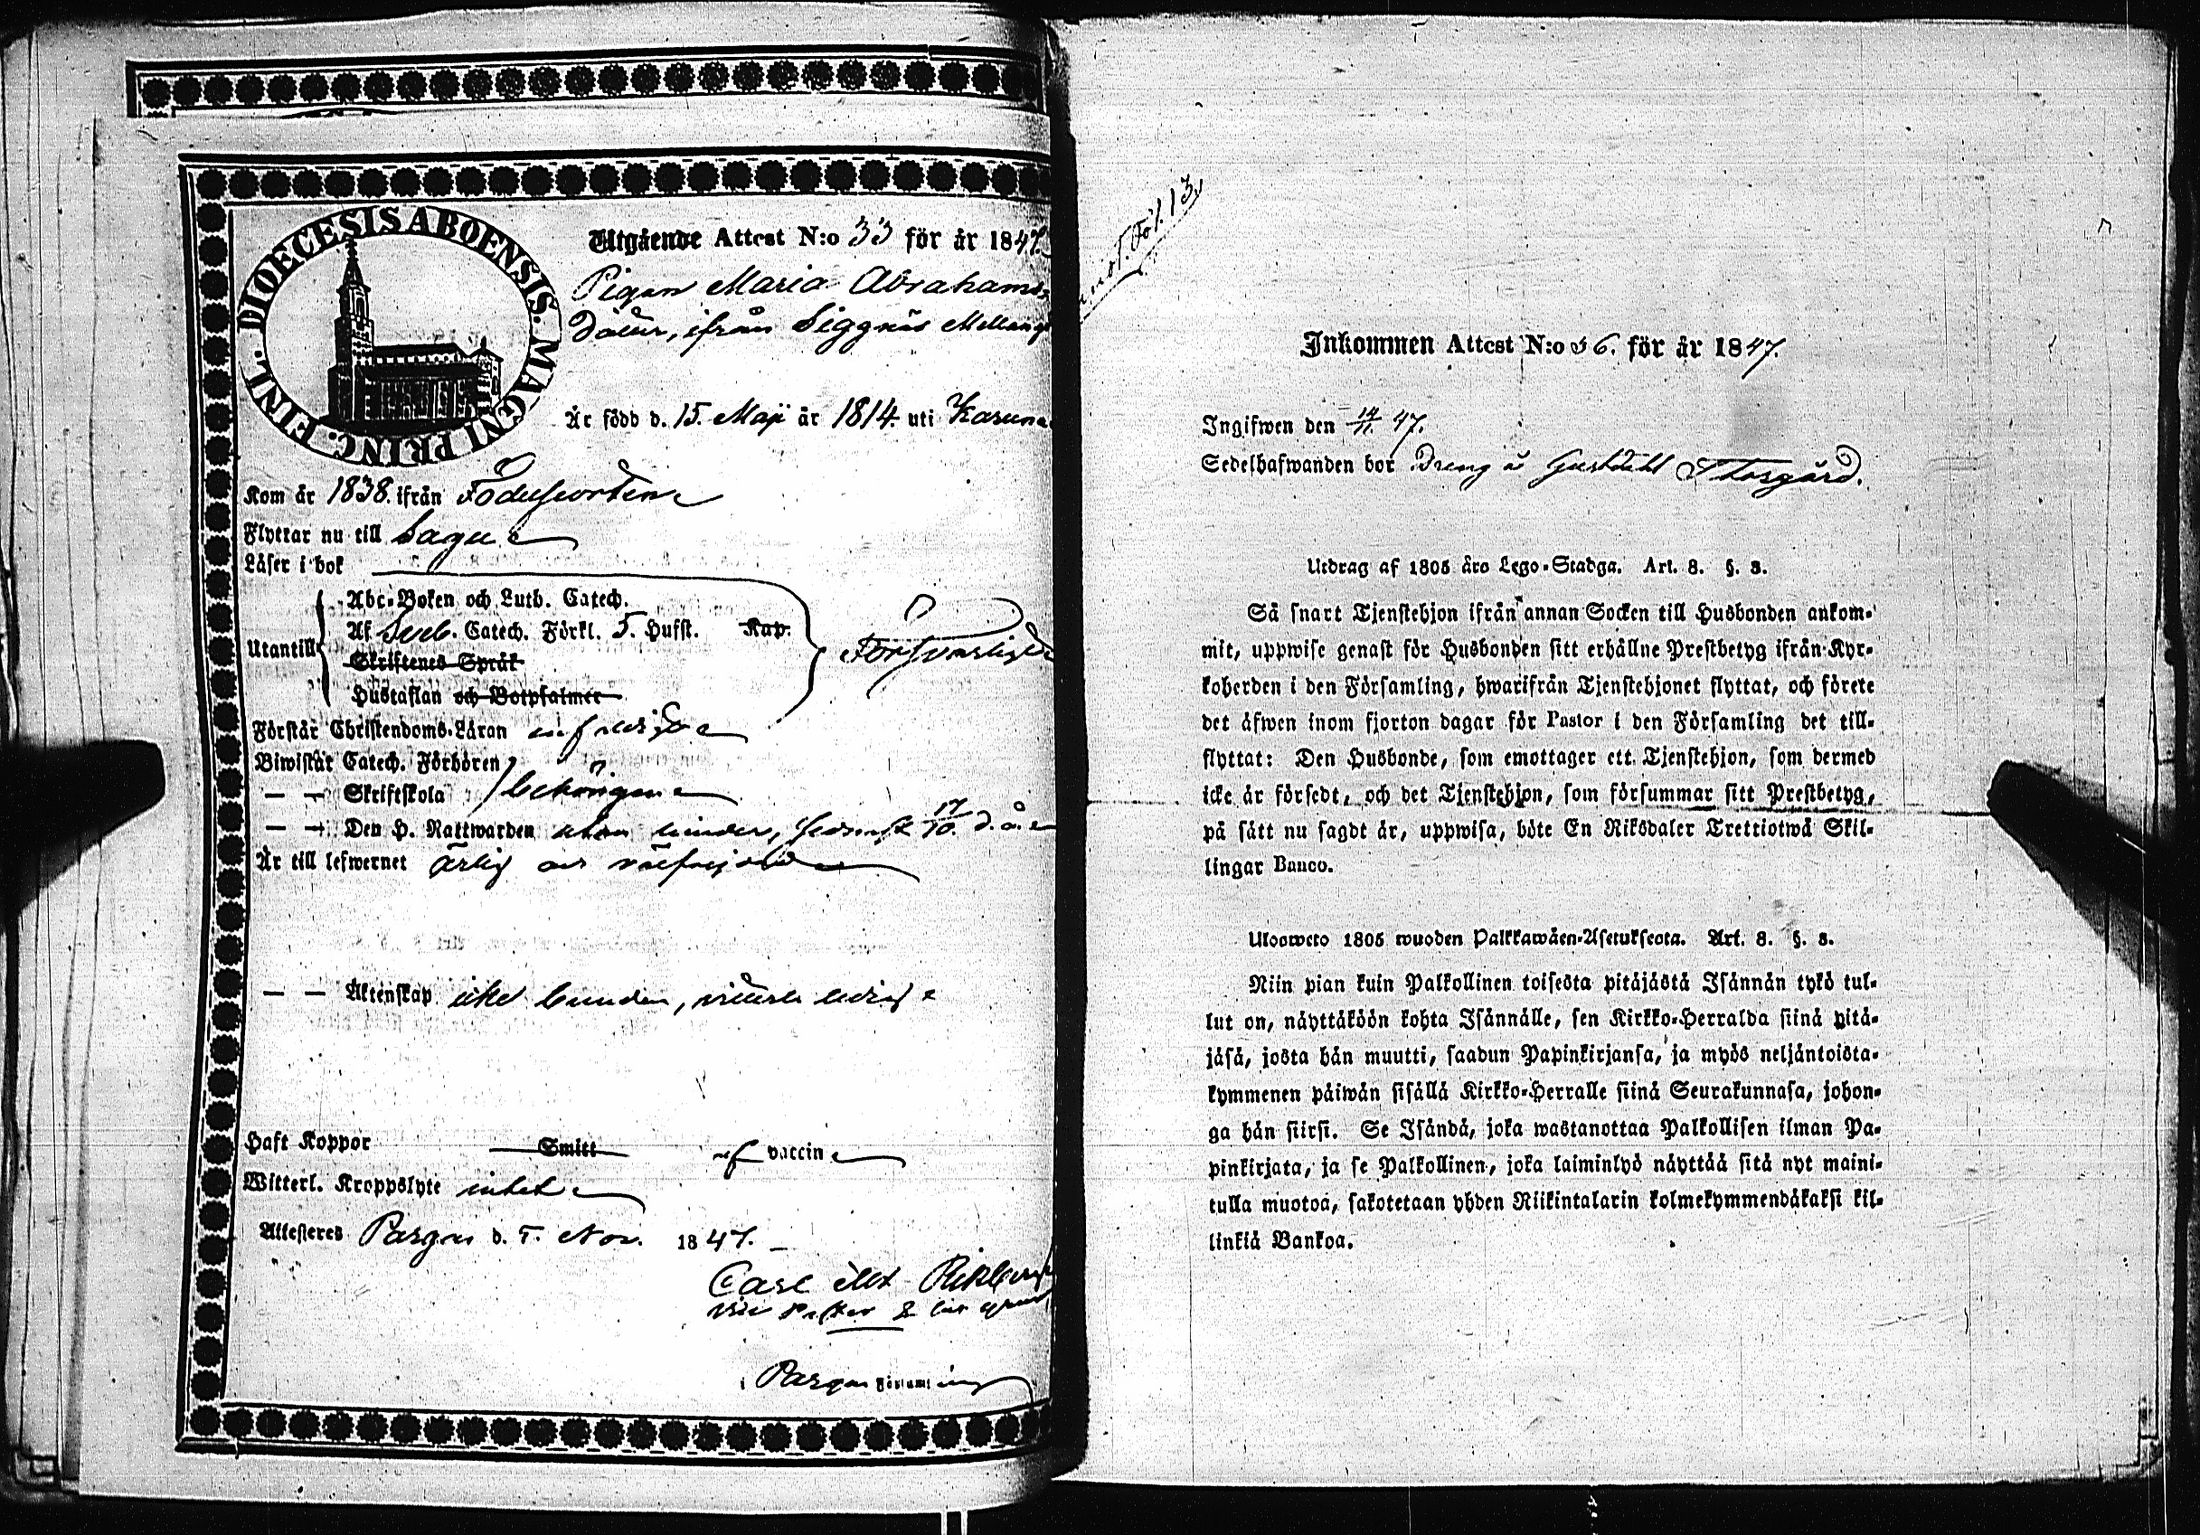 DIOECESIS ABOENSIS. MAGNI PRINC. FINL.
Utgående Attest N:o 33 för år 1847.
Pigan Maria Abrahams-
doter, ifrån Siggnäs Mellang
Är född d. 15. Maji år 1814. uti Karuna
Kom år 1838. ifrån Födelseorten
Flyttar nu till Sagu
Läser i bok
Abc-Boken och Luth. Catech.
Utantill Af Sveb. Catech. Förkl. 5. Hufst. Kap.
Försvarligen
Skriftenes Språk
Hustaflan och Botpsalmer
Förstår Christendoms-Läran
Biwistår Catech. Förhören
— — Skriftskola behörigen
— — Den H. Nattwarden utan hinder, sednast 17/10. d. å.
Är till lefwernet ärlig och välfrejdad
— — Äktenskap icke bunden, ledig
Haft Koppor Smitt af vaccin
Witterl. Kroppslyte intet
Attesteres Pargas d. 5. Nov. 1847.
Carl
i Pargas Församling
Fol. 13
Inkommen Attest N:o 36. för år 1847.
Ingifwen den 14/11. 47.
Sedelhafwanden bor Dreng å Storgård.
Utdrag af 1805 års Lego-Stadga. Art. 8. §. 3.
Så snart Tjenstehjon ifrån annan Socken till Husbonden ankom-
mit, uppwise genast för Husbonden sitt erhållne Prestbetyg ifrån Kyr-
koherden i den Församling, hwarifrån Tjenstehjonet flyttat, och förete
det äfwen inom fjorton dagar för Pastor i den Församling det till-
flyttat: Den Husbonde, som emottager ett Tjenstehjon, som dermed
icke är försedt, och det Tjenstehjon, som försummar sitt Prestbetyg,
på sätt nu sagdt är, uppwisa, böte En Riksdaler Trettiotwå Skil-
lingar Banco.
Uloswcto 1805 wuoden Palkkawäen-Asetuksesta. Art. 8. §. 3.
Niin pian kuin Palkollinen toisesta pitäjästä Isännän tykö tul-
lut on, näyttäköön kohta Isännälle, sen Kirkko-Herralda siinä pitä-
jäsä, josta hän muutti, saadun Papinkirjansa, ja myös neljäntoista-
kymmenen päiwän sisällä Kirkko-Herralle siinä Seurakunnasa, johon-
ga hän siirsi. Se Isändä, joka wastanottaa Palkollisen ilman Pa-
pinkirjata, ja se Palkollinen, joka laiminlyö näyttää sitä nyt maini-
tulla muotoa, sakotetaan yhden Riikintalarin kolmekymmendäkaksi kil-
linkiä Bankoa.